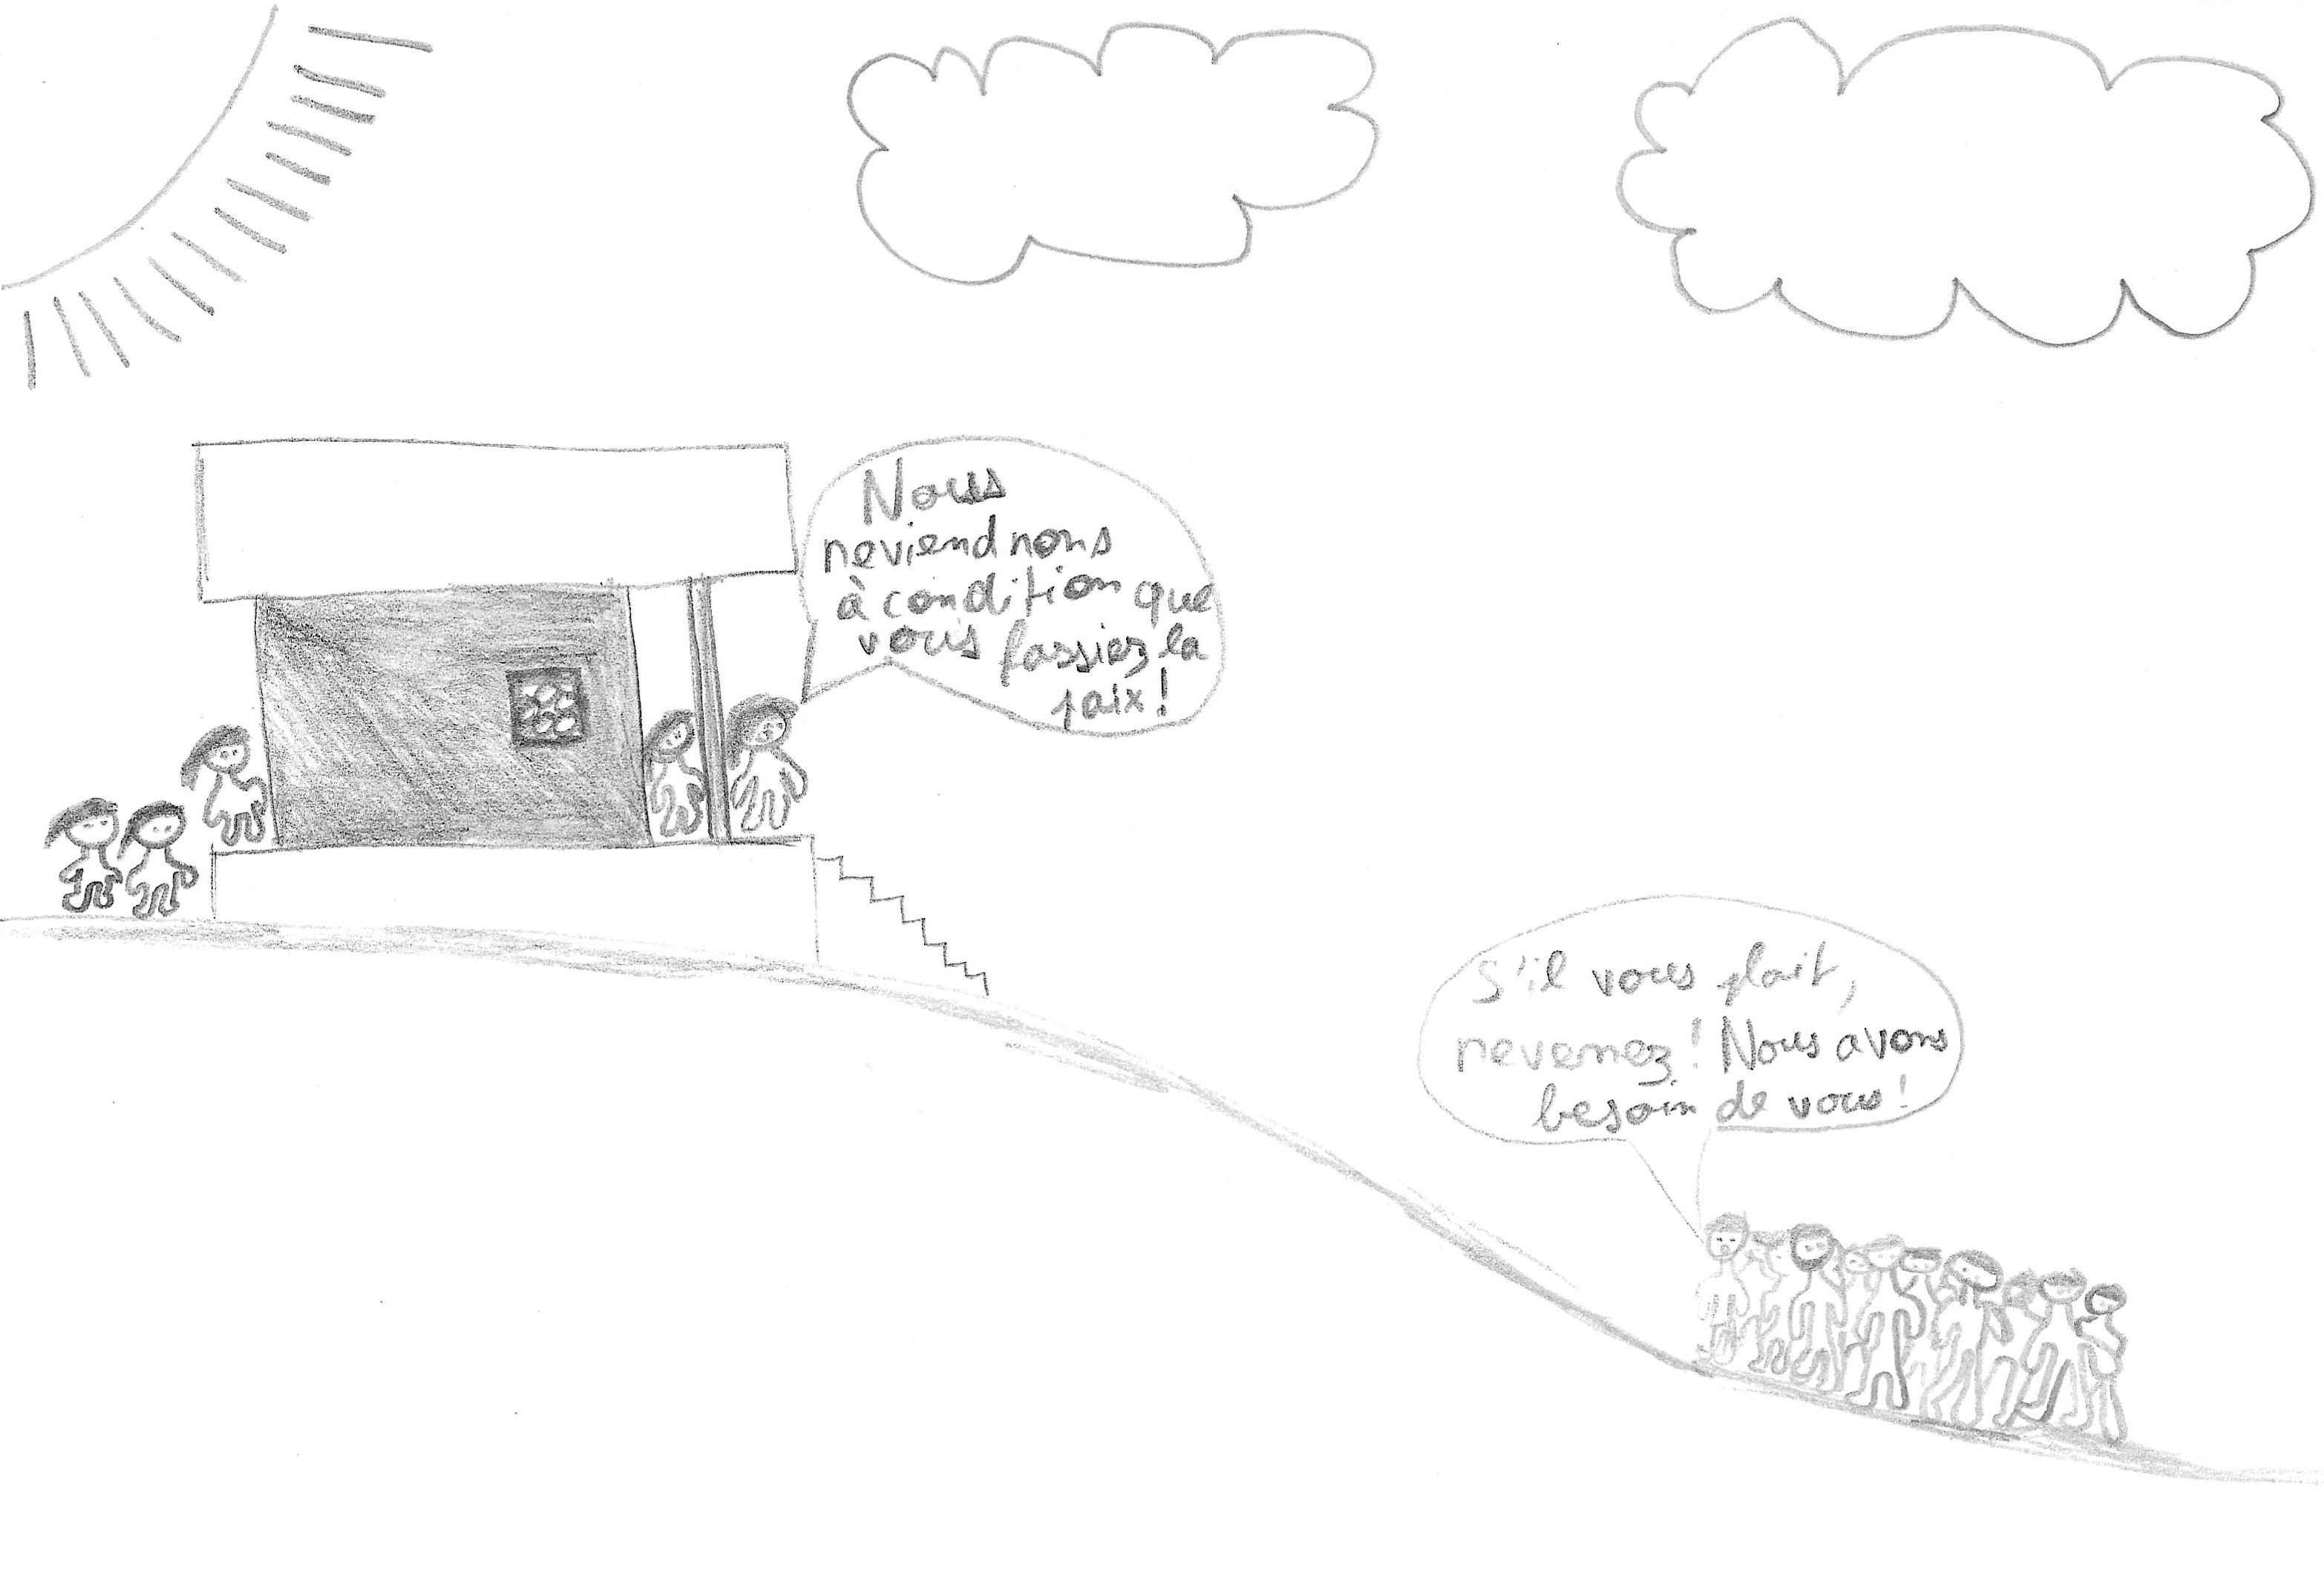 Nous
reviendrons
à condition que
vous fassiez la
paix!
S'il vous plait,
revenez! Nous avons
besoin de vous!